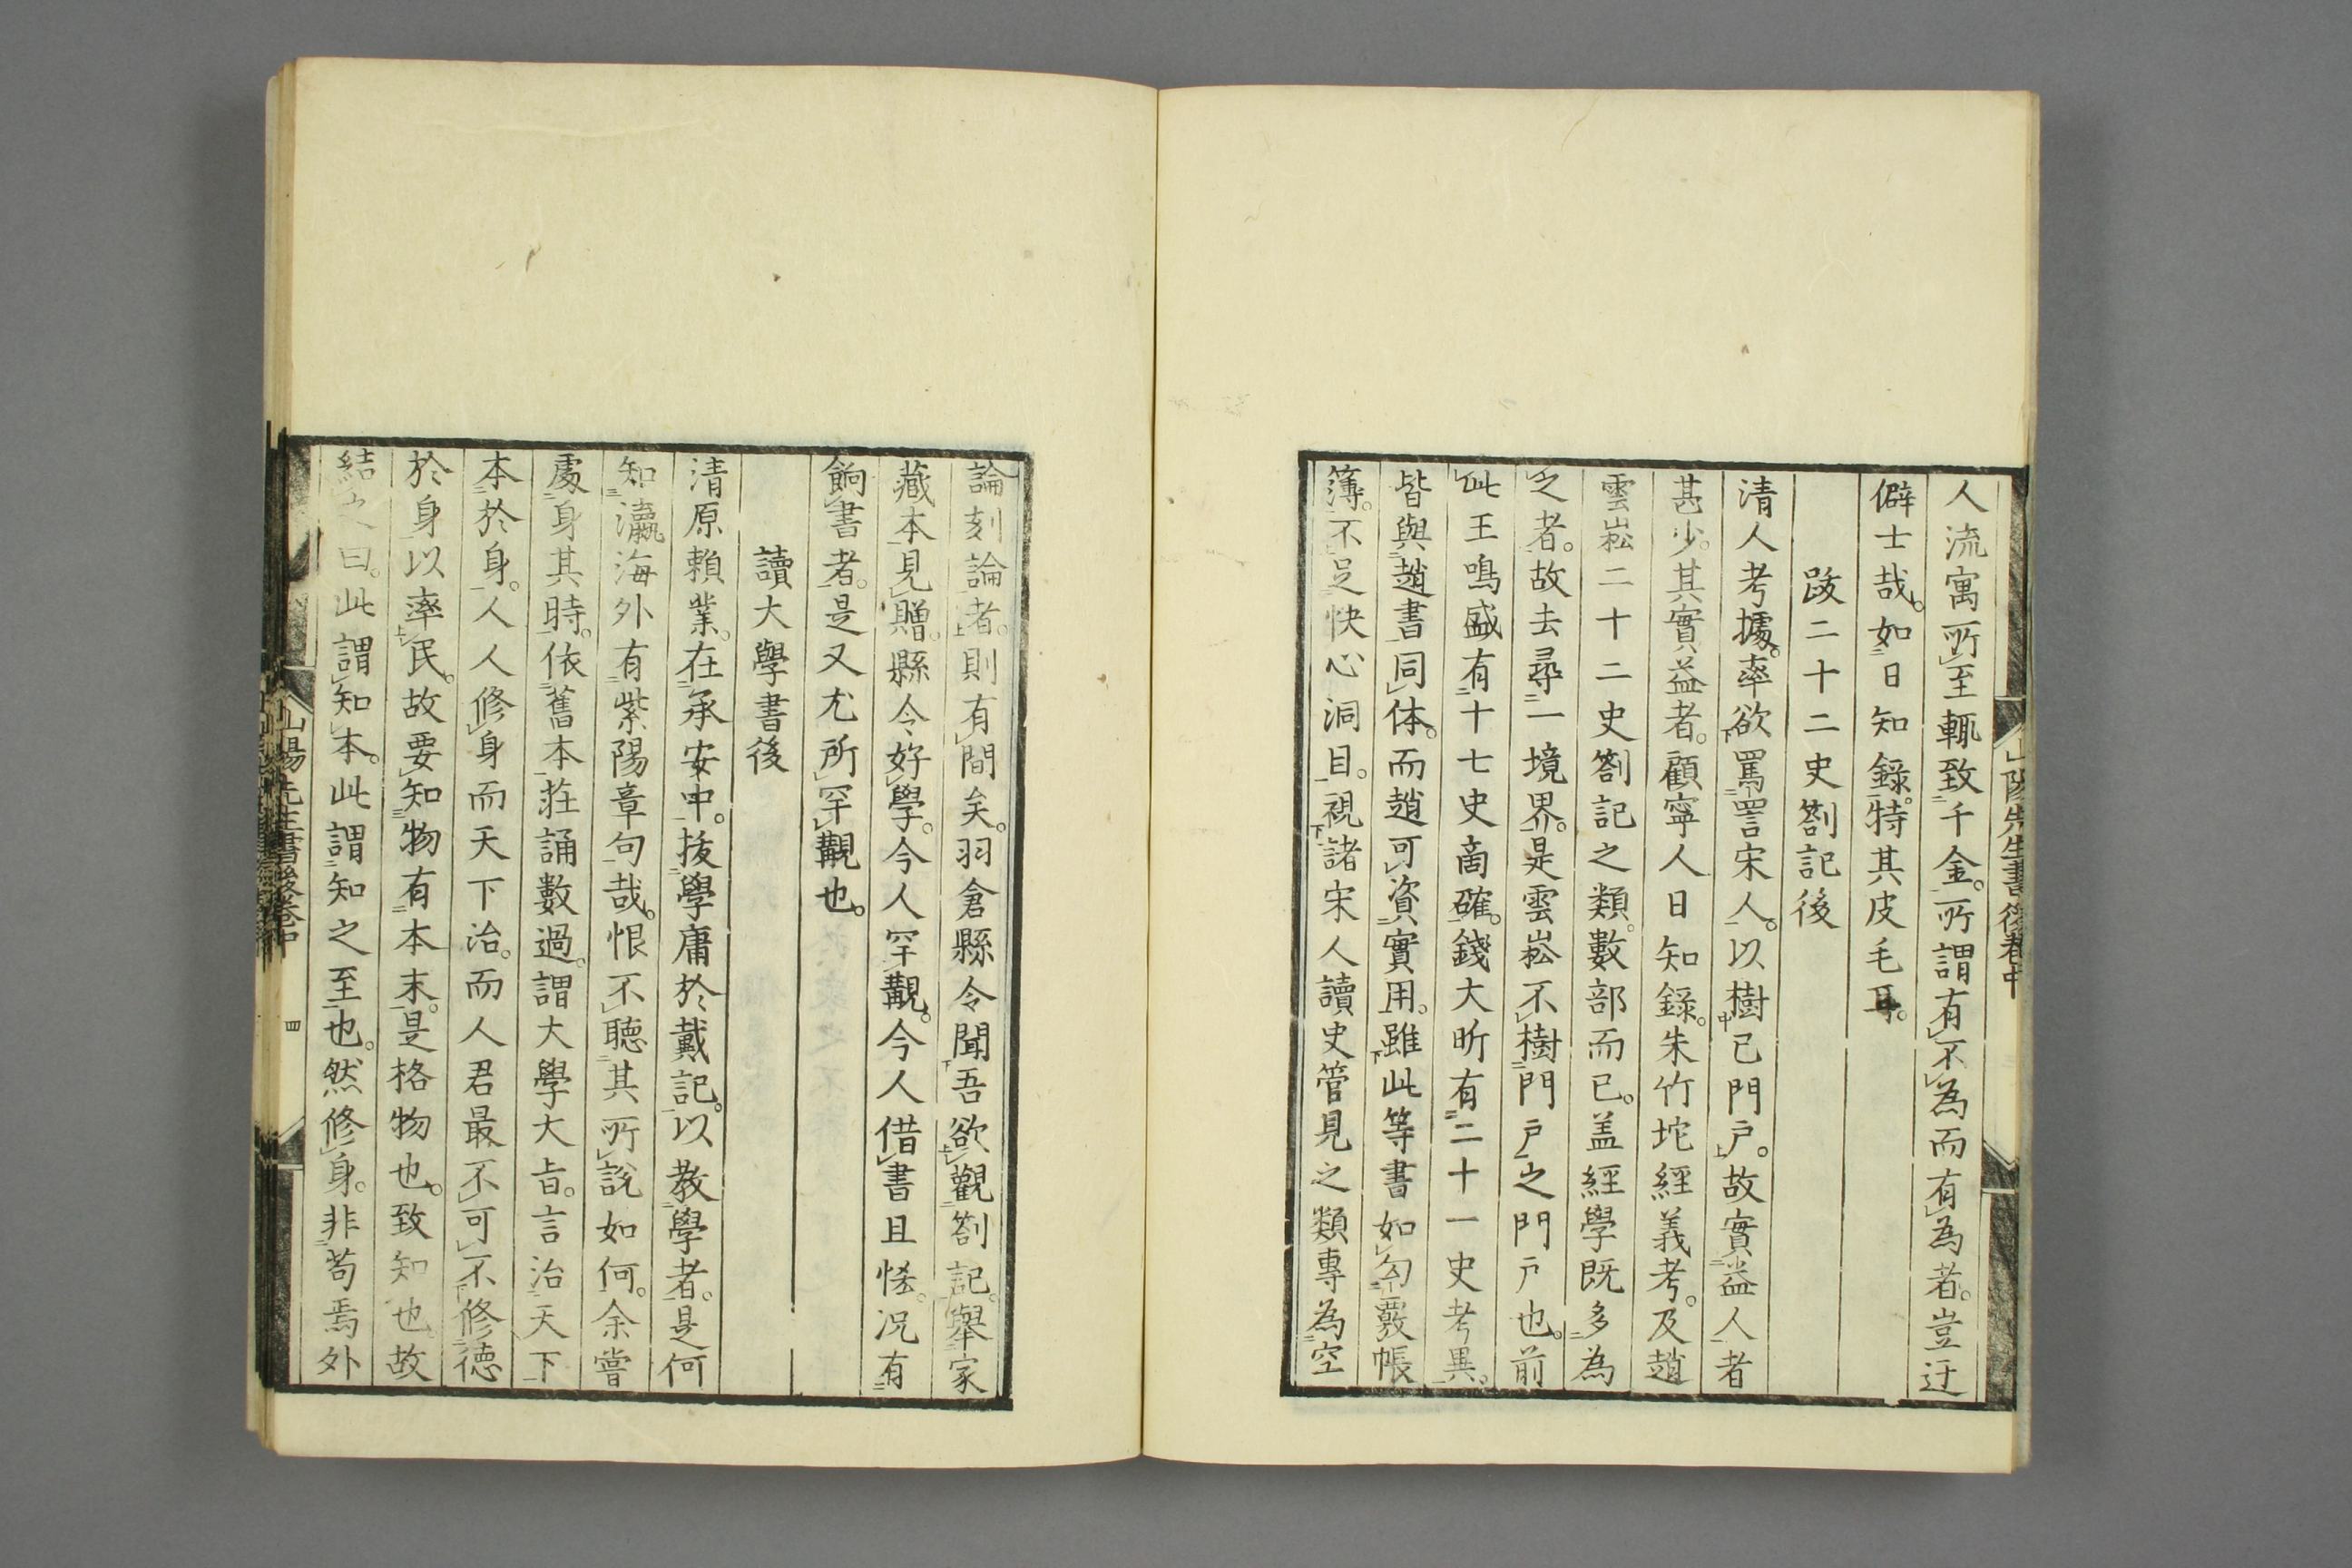 山陽先生書後卷中
人流寓所至輒致千金。所謂有不為而有為者。豈迂
僻士哉。如日知錄。特其皮毛耳。
跋二十二史劄記後
清人考據。率欲罵詈宋人。以樹已門戶。故實益人者
甚少。其實益者。顧寧人日知錄。朱竹垞經義考。及趙
雲崧二十二史劄記之類。數部而已。盖經學既多為
之者。故去尋一境界。是雲崧不樹門戶之門戶也。前
此王鳴盛有十七史商確。錢大昕有二十一史考異。
皆與趙書同体。而趙可資實用。雖此等書如勾覈帳
簿。不足快心洞目。視諸宋人讀史管見之類專為空
論刻論者。則有間矣。羽倉縣令聞吾欲觀劄記。舉家
藏本見贈。縣令好學。今人罕覯。今人借書且恡。况有
餉書者。是又尤所罕覯也。
讀大學書後
清原賴業。在承安中。拔學庸於戴記。以教學者。是何
知瀛海外有紫陽章句哉。恨不聽其所說如何。余嘗
處身其時。依舊本莊誦數過。謂大學大旨。言治天下
本於身。人人修身而天下治。而人君最不可不修德
於身以率民。故要知物有本末。是格物也。致知也。故
結之曰。此謂知本。此謂知之至也。然修身。非苟焉外
山陽先生書後卷中
四